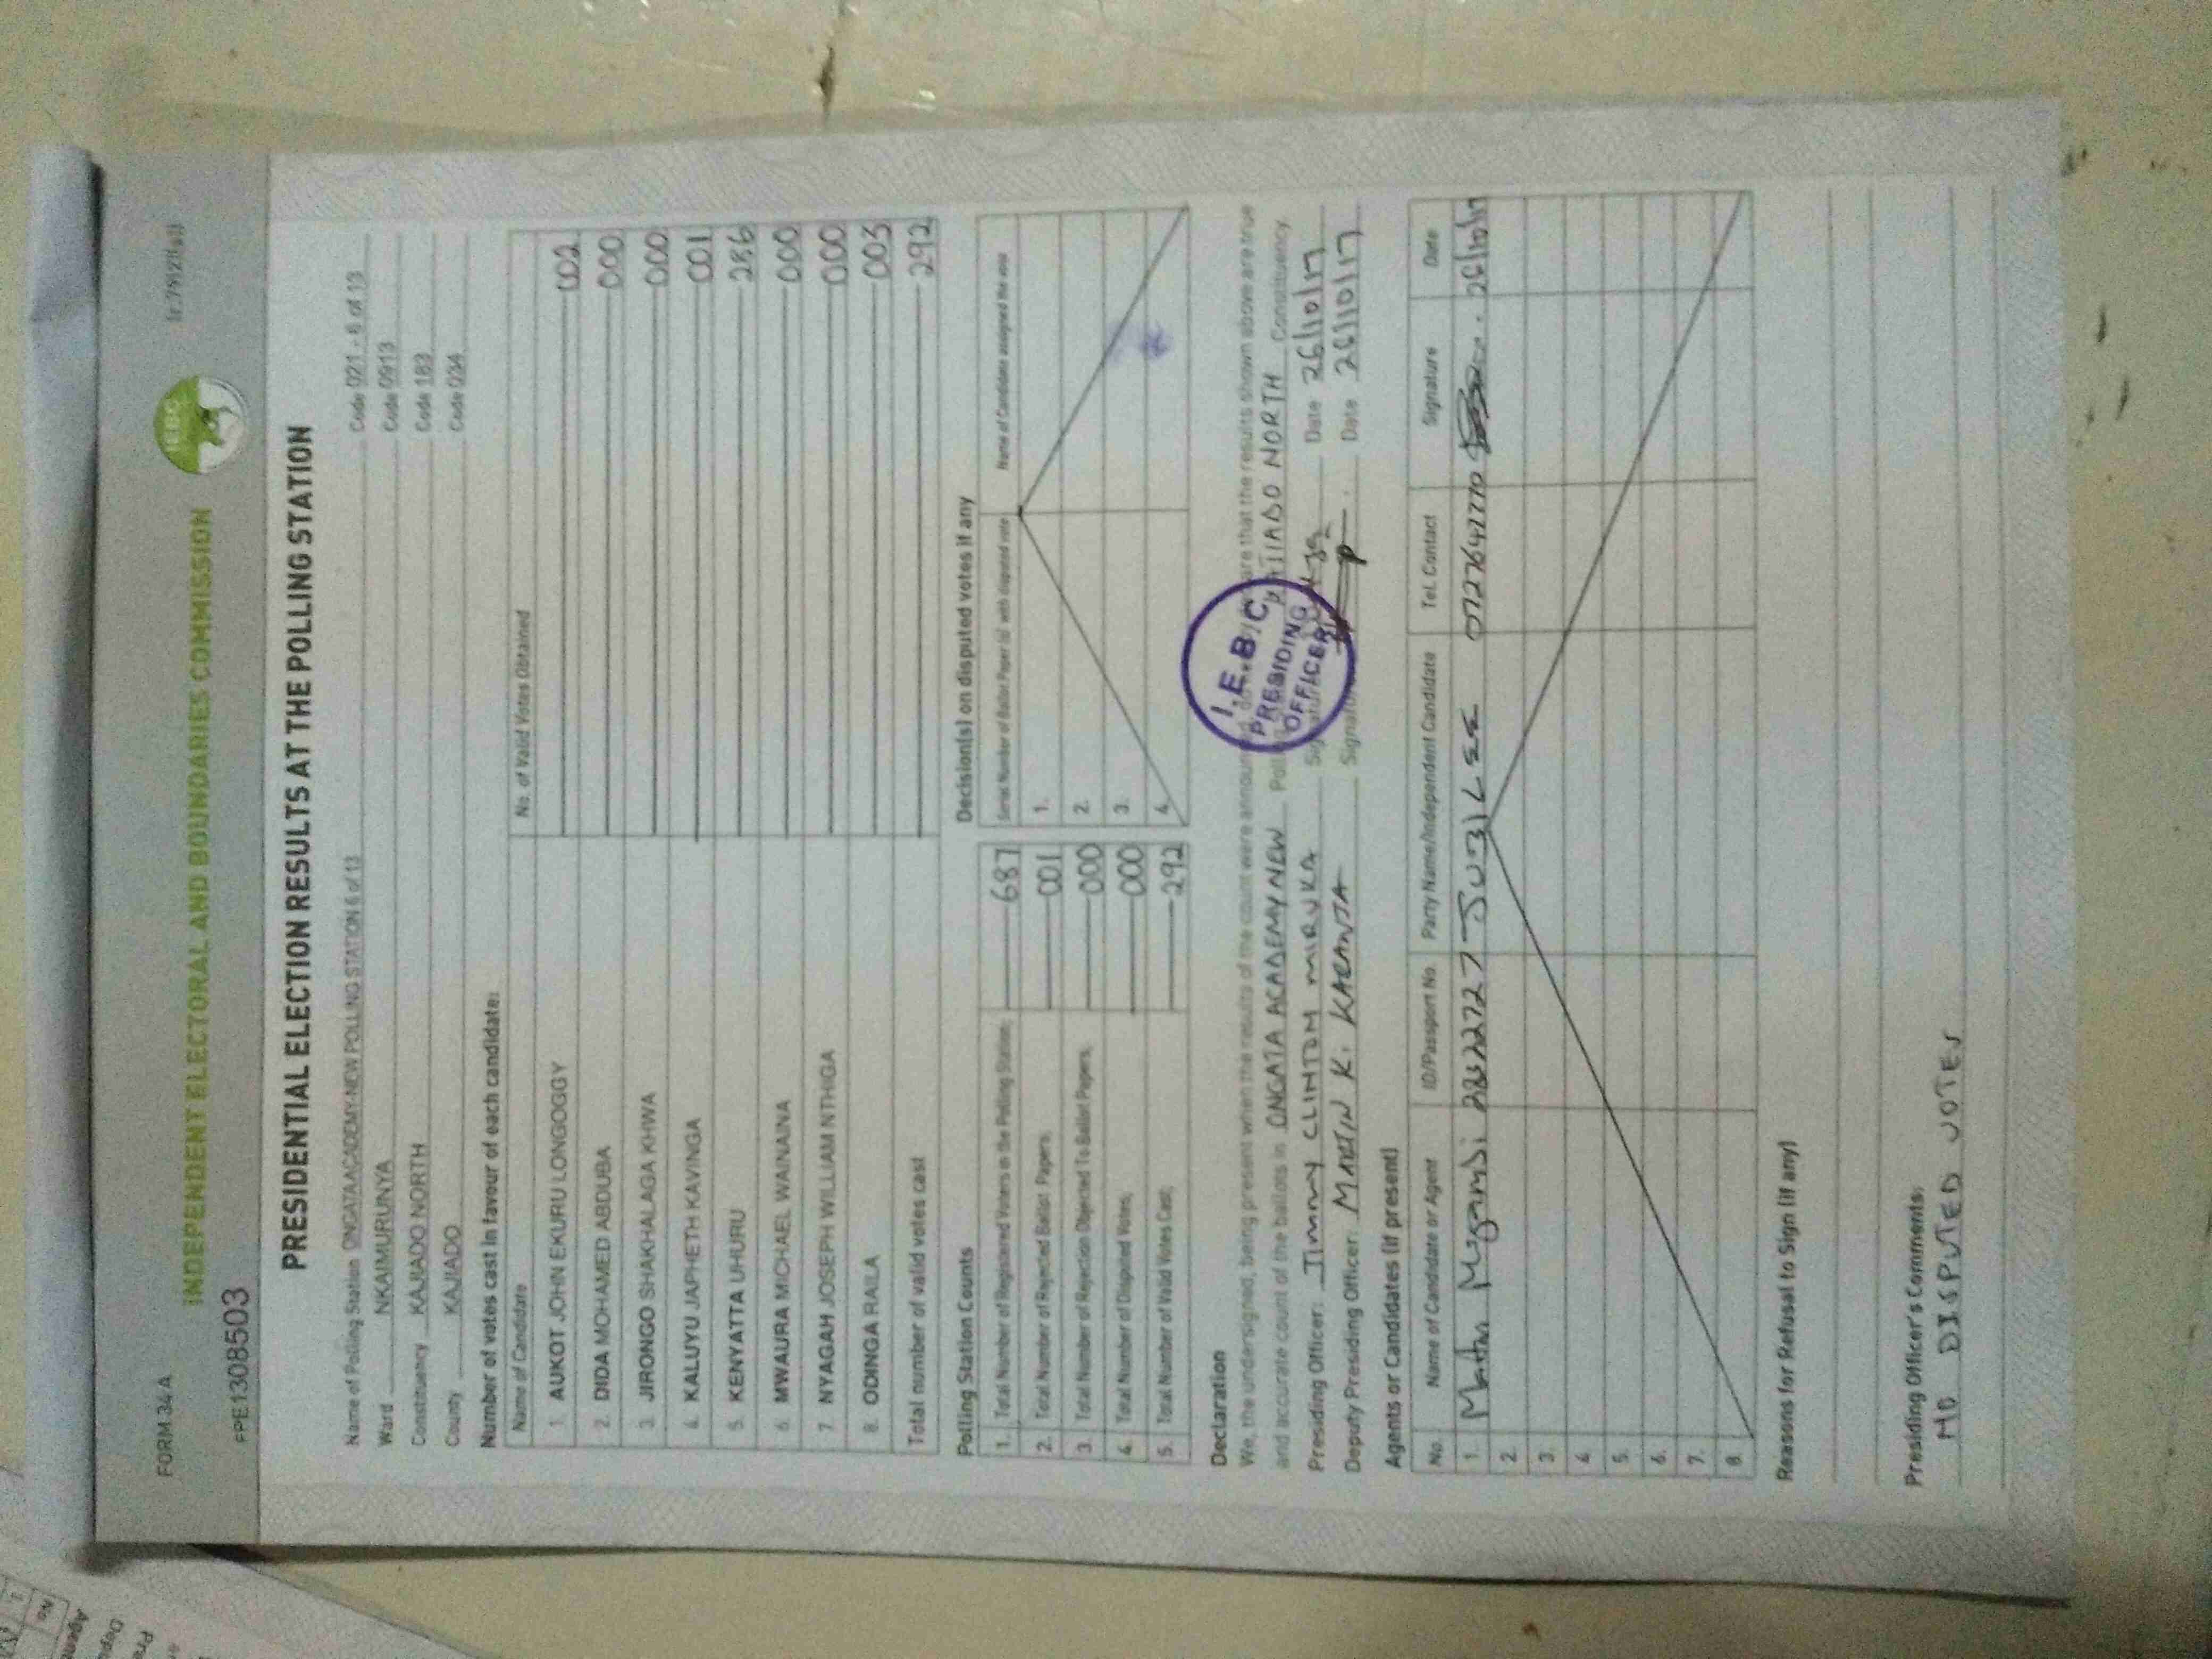 FORM 34 A
INDEPENDENT ELECTORAL AND BOUNDARIES COMMISSION
IEBC
FPE1308503
PRESIDENTIAL ELECTION RESULTS AT THE POLLING STATION
Name of Polling Station ONGATA ACADEMY-NEW POLLING STATION 6 of 13 Code 021 - 6 of 13
Ward NKAIMURUNYA Code 0913
Constituency KAJIADO NORTH Code 183
County KAJIADO Code 034
Number of votes cast in favour of each candidate:
Name of Candidate No. of Valid Votes Obtained
1. AUKOT JOHN EKURU LONGOGGY 002
2. DIDA MOHAMED ABDUBA 000
3. JIRONGO SHAKHALAGA KHWA 000
4. KALUYU JAPHETH KAVINGA 001
5. KENYATTA UHURU 286
6. MWAURA MICHAEL WAINAINA 000
7. NYAGAH JOSEPH WILLIAM NTHIGA 000
8. ODINGA RAILA 003
Total number of valid votes cast 292
Polling Station Counts Decision(s) on disputed votes if any
Serial Number of Ballot Paper (s) with disputed vote Name of Candidate assigned the vote
1. Total Number of Registered Voters in the Polling Station; 687 1.
2. Total Number of Rejected Ballot Papers; 001 2.
3. Total Number of Rejection Objected To Ballot Papers; 000 3.
4. Total Number of Disputed Votes; 000 4.
5. Total Number of Valid Votes Cast; 292
Declaration
We, the undersigned, being present when the results of the count were that the results shown above are true
and accurate count of the ballots in ONGATA ACADEMY NEW KAJIADO NORTH Constituency.
Presiding Officer: JIMMY CLINTON MIRUKA Date 26/10/17
Deputy Presiding Officer: MARTIN K. KARANJA Signature Date 26/10/17
I.E.B.C
PRESIDING
OFFICER
Agents or Candidates (if present)
No. Name of Candidate or Agent ID/Passport No. Party Name/Independent Candidate Tel. Contact Signature Date
1. JUBILEE 26/10/17
2.
3.
4.
5.
6.
7.
8.
Reasons for Refusal to Sign (if any)
Presiding Officer's Comments:
NO DISPUTED VOTES